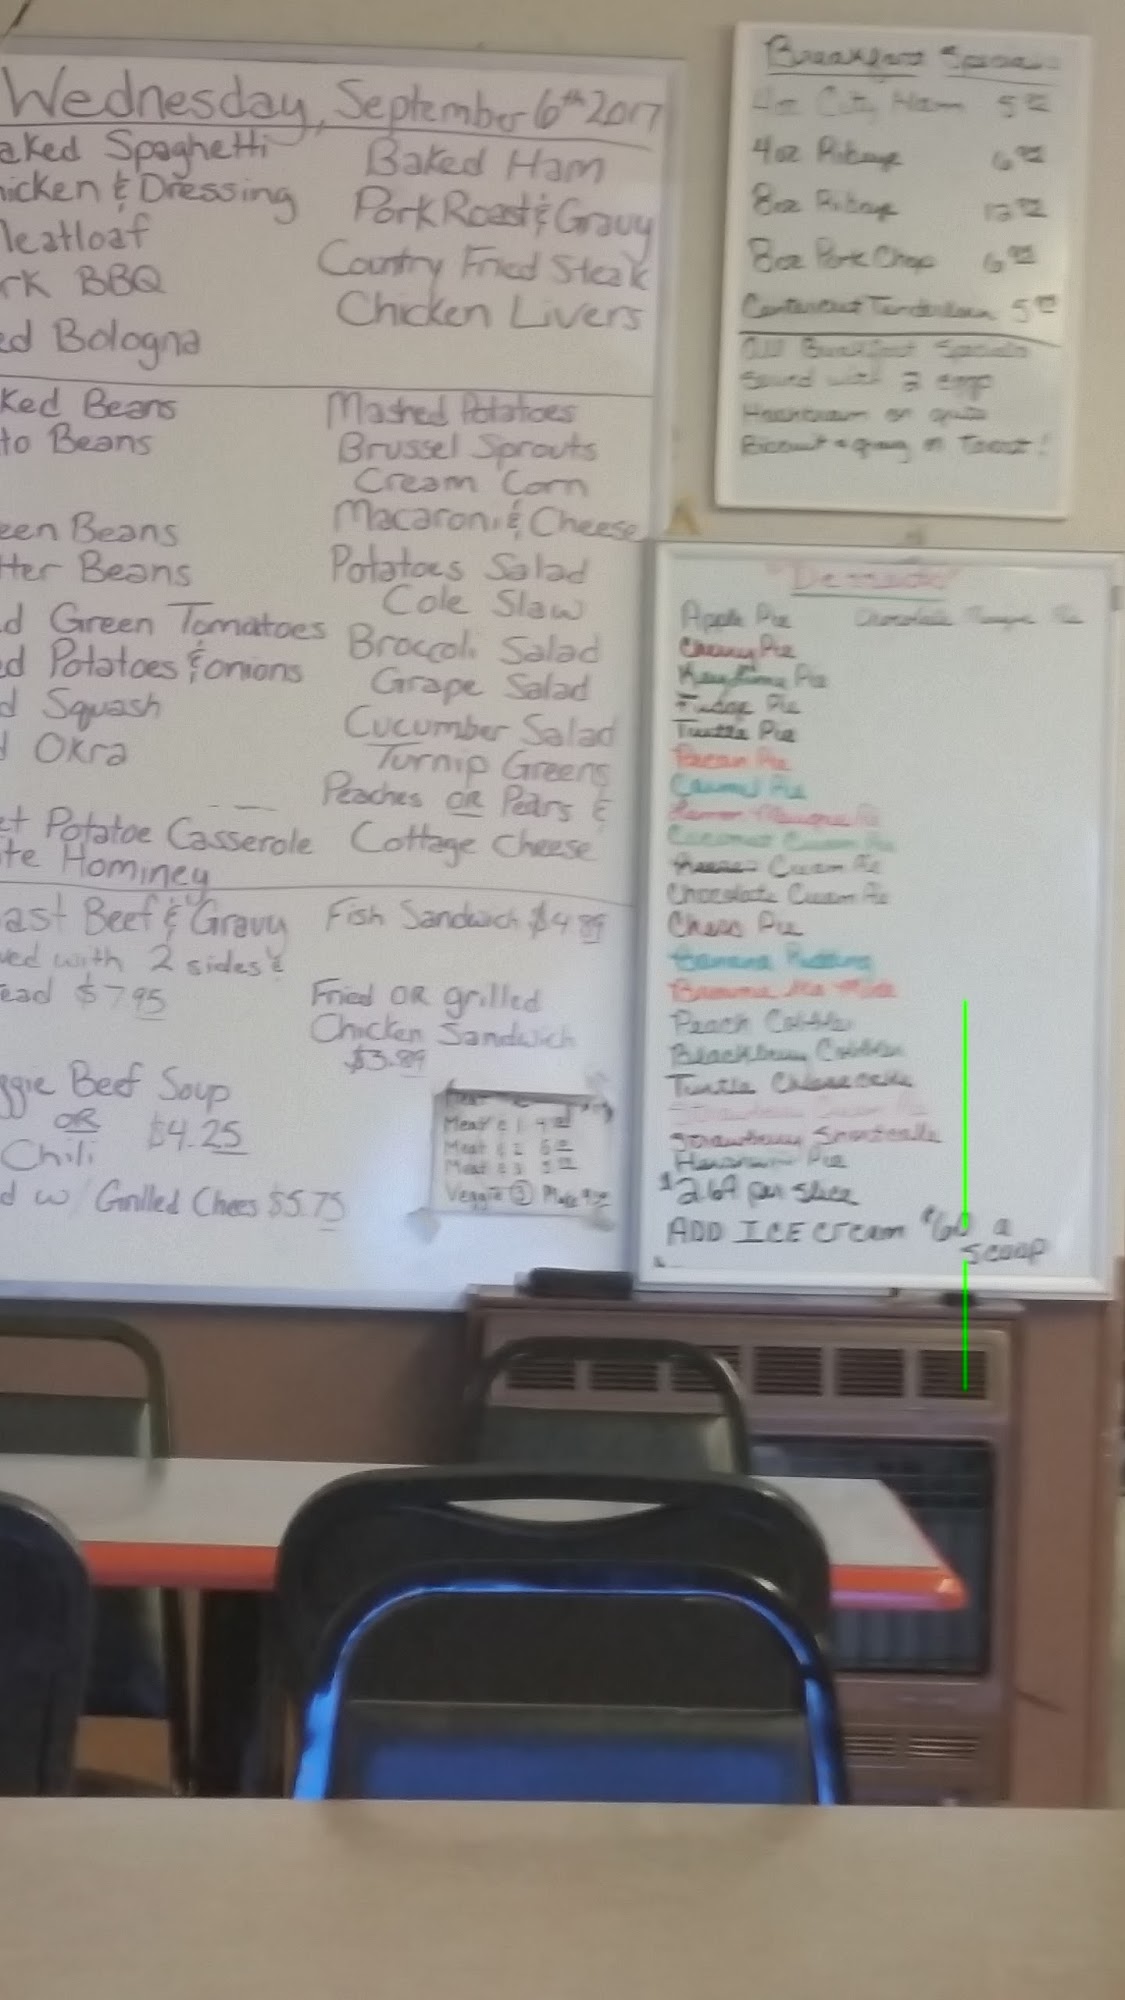 Wednesday, September 6th 2017
aked Spaghetti
hicken & Dressing
Meatloaf
rk BBQ
ed Bologna
Baked Ham
Pork Roast & Gravy
Country Fried Steak
Chicken Livers
ked Beans
to Beans
een Beans
tter Beans
d Green Tomatoes
ed Potatoes & onions
d Squash
d Okra
et Potatoe Casserole
te Hominey
Mashed Potatoes
Brussel Sprouts
Cream Corn
Macaroni & Cheese
Potatoes Salad
Cole Slaw
Broccoli Salad
Grape Salad
Cucumber Salad
Turnip Greens
Peaches OR Pears &
Cottage Cheese
ast Beef & Gravy
ved with 2 sides &
ead $7.95
ggie Beef Soup
OR $4.25
Chili
d w/ Grilled Chees $5.75
Fish Sandwich $4.89
Fried OR grilled
Chicken Sandwich
$3.89
Meat & 1
Meat & 2
Meat & 3
Veggie Plate
Breakfast Specials
4oz City Ham
4oz Ribeye
8oz Ribeye
8oz Pork Chop
Tenderloin
All Breakfast Specials
Served with 2 eggs
Hashbrown or grits
Biscuit & gravy or Toast!
"Desserts"
Apple Pie
Cherry Pie
Key Lime Pie
Fudge Pie
Turtle Pie
Pecan Pie
Caramel Pie
Lemon Meringue Pie
Coconut Cream Pie
Cream Pie
Chocolate Cream Pie
Chess Pie
Banana Pudding
Brownie
Peach Cobbler
Blackberry Cobbler
Turtle Cheesecake
Strawberry Cream Pie
Strawberry Shortcake
Pie
$2.69 per slice
ADD ICE cream $60 a
scoop
Chocolate Pie